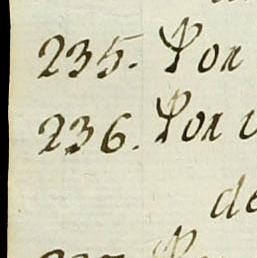 235. Por
236. Por
de